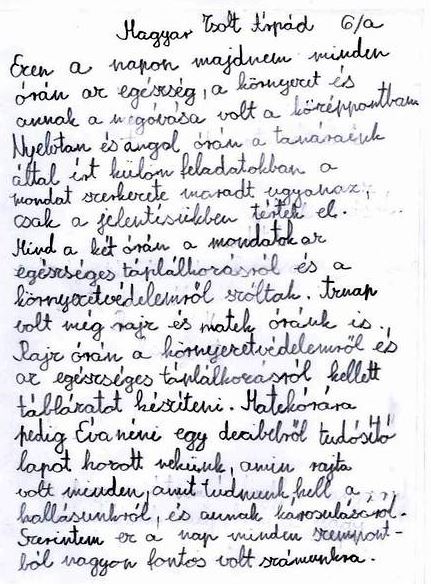 Magyar Zsolt Árpád 6/a
Ezen a napon majdnem minden
órán az egészség, a környezet és
annak a megóvása volt a középpontban
Nyelvtan és angol órán a tanáraink
által írt külön feladatokban a
mondat szerkezete maradt ugyanaz,
csak a jelentésükben tértek el.
Mind a két órán a mondatok az
egészséges táplálkozásról és a
környezetvédelemről szóltak. Aznap
volt még rajz és matek óránk is.
Rajz órán a környezetvédelemről és
az egészséges táplálkozásról kellett
táblázatot készíteni. Matekórára
pedig Éva néni egy decibelről tudósító
lapot hozott nekünk, amin rajta
volt minden, amit tudnunk kell a
hallásunkról, és annak károsulásáról.
Szerintem ez a nap minden szempont-
ból nagyon fontos volt számunkra.